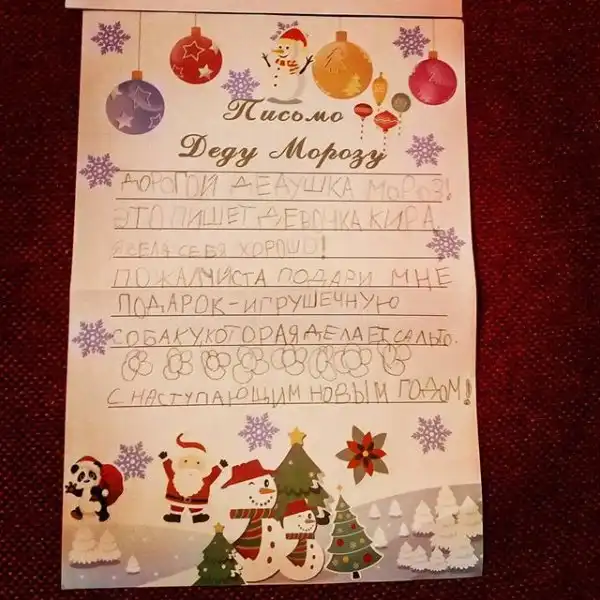 Письмо
Деду Морозу
ДОРОГОЙ ДЕДУШКА МОРОЗ!
ЭТО ПИШЕТ ДЕВОЧКА КИРА.
Я ВЕЛА СЕБЯ ХОРОШО!
ПОЖАЛЧЙСТА ПОДАРИ МНЕ
ПОДАРОК-ИГРУШЕЧНУЮ
СОБАКУ,КОТОРАЯ ДЕЛАЕТ САЛЬТО.
С НАСТУПАЮЩИМ НОВЫМ ГОДОМ!